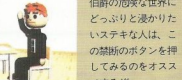 伯爵の危険な世界に
どっぷりと浸かりた
いステキな人は、こ
の禁断のボタンを押
してみるのをオスス